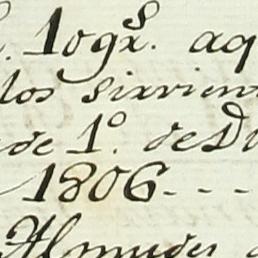 10 gr^s. aq
los sirvien
de 1º. de D
1806---
Almudes